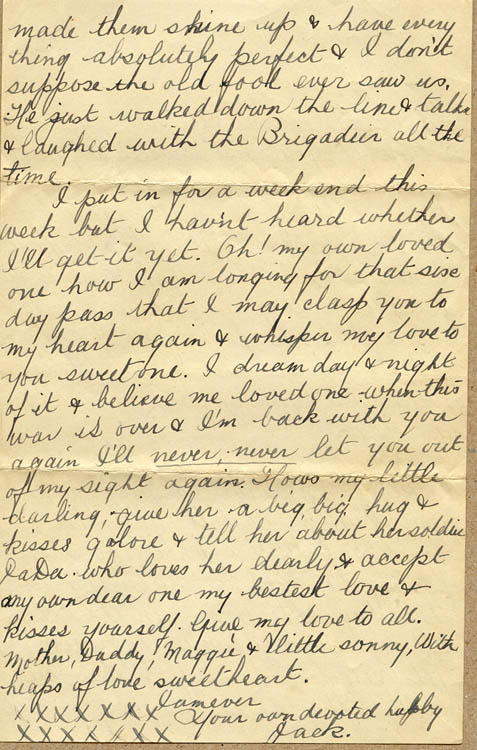 made them shine up & have every
thing absolutely perfect & I don't
suppose the old fool ever saw us.
He just walked down the line & talks
& laughed with the Brigadier all the
time.
I put in for a week end this
week but I havn't heard whether
I'll get it yet. Oh! my own loved
one how I am longing for that six
day pass that I may clasp you to
my heart again & whisper my love to
you sweet one. I dream day & night
of it & believe me loved one when this
war is over & I'm back with you
again I'll never, never let you out
of my sight again. Hows my little
darling, give her a big, big, hug &
kisses galore & tell her about her soldier
DaDa who loves her dearly & accept
my own dear one my bestest love &
kisses yourself. Give my love to all.
Mother, Daddy, Maggie & little sonny, With
heaps of love sweetheart.
I am ever
X X X X X X X Your own devoted hubby
X X X X X X X Jack.